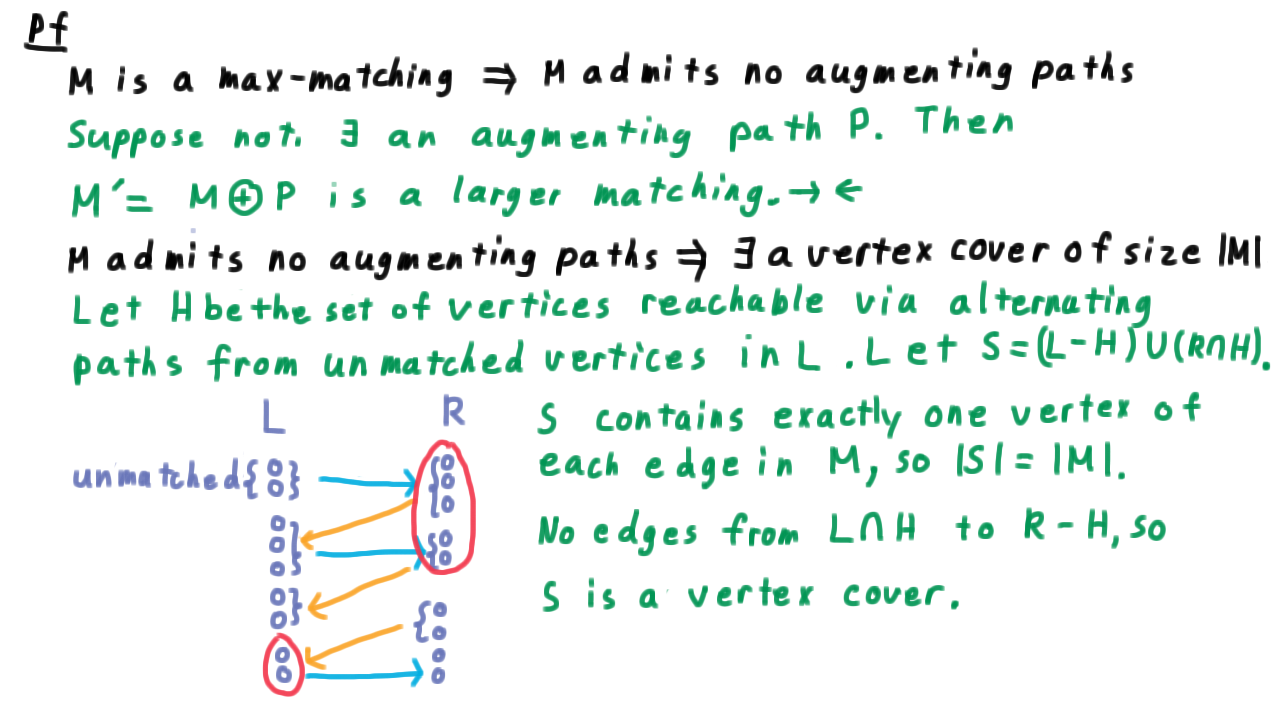 Pf
M is a max-matching ⇒ M admits no augmenting paths
Suppose not. ∃ an augmenting path P. Then
M′= M⊕P is a larger matching.→←
M admits no augmenting paths ⇒ ∃ a vertex cover of size |M|
Let H be the set of vertices reachable via alternating
paths from unmatched vertices in L. Let S=(L-H)∪(R∩H).
L R
unmatched
S contains exactly one vertex of
each edge in M, so |S|=|M|.
No edges from L∩H to R-H, so
S is a vertex cover.